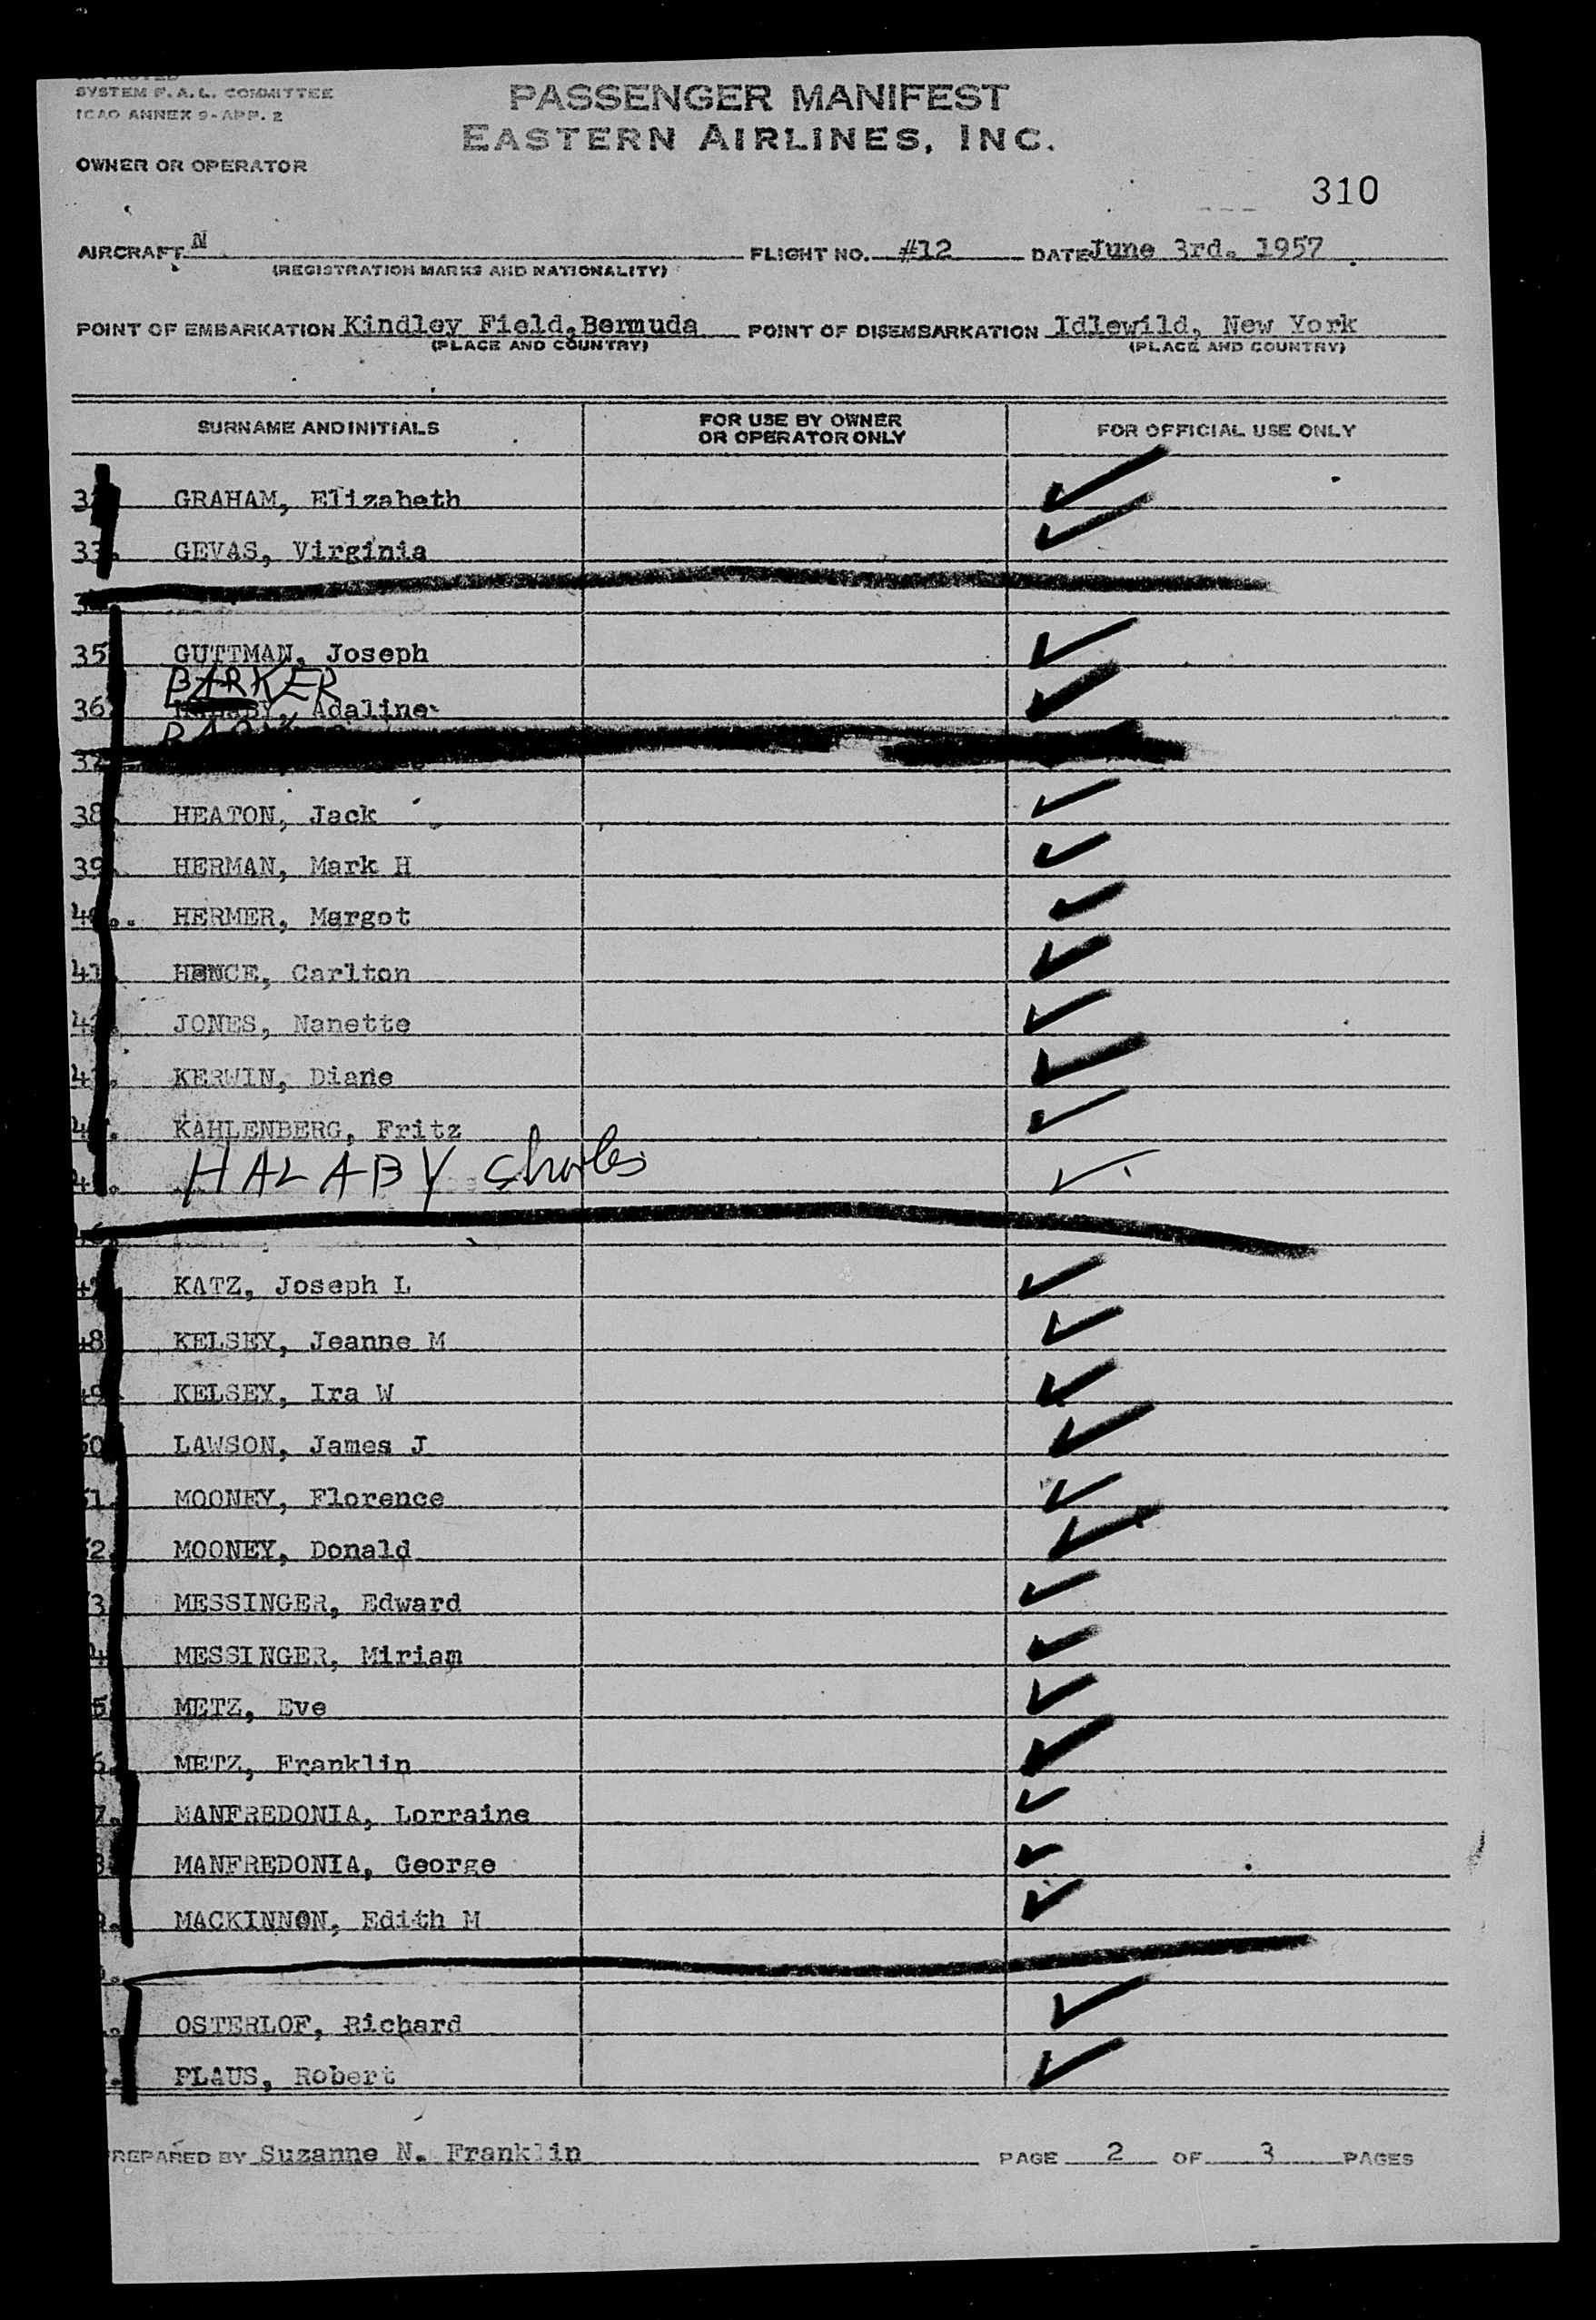 SYSTEM F.A.L. COMMITTEE
ICAO ANNEX 9-APP. 2
PASSENGER MANIFEST
EASTERN AIRLINES, INC.
OWNER OR OPERATOR
310
AIRCRAFT N FLIGHT NO. #12 DATE June 3rd. 1957
(REGISTRATION MARKS AND NATIONALITY)
POINT OF EMBARKATION Kindley Field, Bermuda POINT OF DISEMBARKATION Idlewild, New York
(PLACE AND COUNTRY) (PLACE AND COUNTRY)
SURNAME AND INITIALS FOR USE BY OWNER OR OPERATOR ONLY FOR OFFICIAL USE ONLY
GRAHAM, Elizabeth
33. GEVAS, Virginia
35 GUTTMAN, Joseph
BARKER
36 Adaline
38 HEATON, Jack
39. HERMAN, Mark H
HERMER, Margot
41 HENCE, Carlton
JONES, Nanette
KERWIN, Diane
KAHLENBERG, Fritz
HALABY Charles
KATZ, Joseph L
48 KELSEY, Jeanne M
49 KELSEY, Ira W
50 LAWSON, James J
51. MOONEY, Florence
2. MOONEY, Donald
3 MESSINGER, Edward
4 MESSINGER, Miriam
5 METZ, Eve
6. METZ, Franklin
7. MANFREDONIA, Lorraine
MANFREDONIA, George
MACKINNON, Edith M
OSTERLOF, Richard
PLAUS, Robert
PREPARED BY Suzanne N. Franklin PAGE 2 OF 3 PAGES